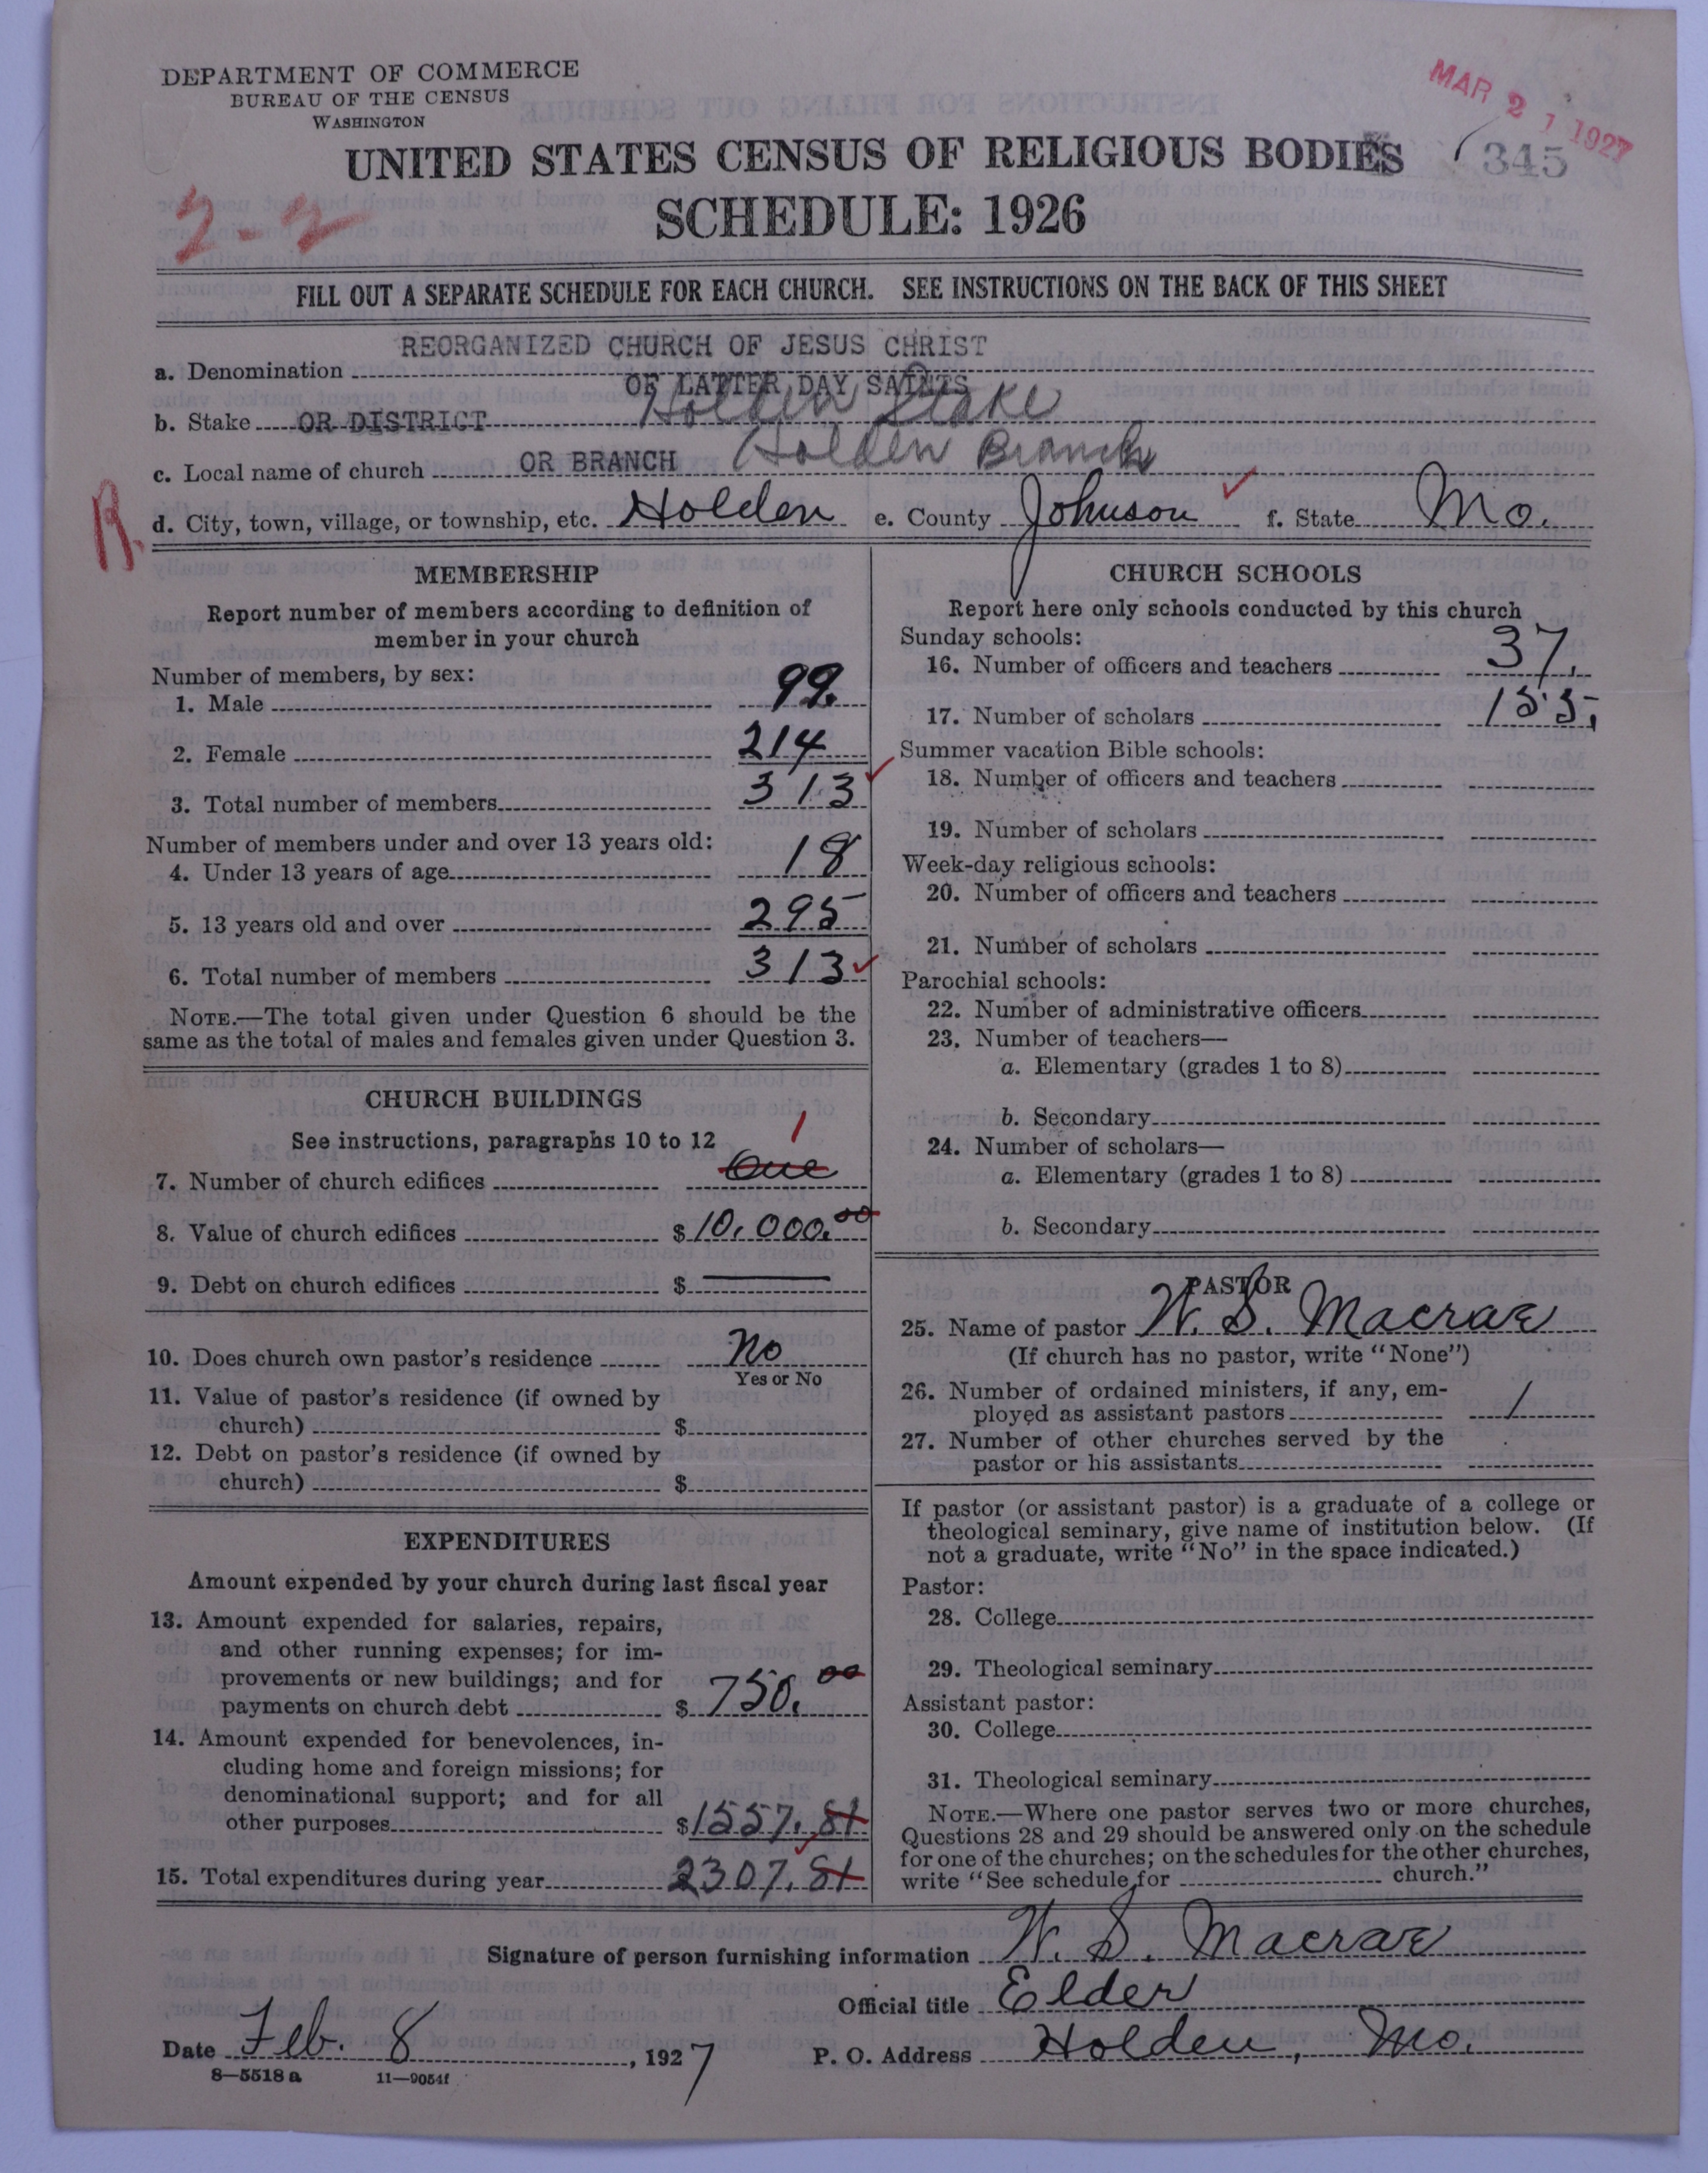 DEPARTMENT OF COMMERCE
BUREAU OF THE CENSUS
WASHINGTON
MAR 21 1927
UNITED STATES CENSUS OF RELIGIOUS BODIES
345
2-2
SCHEDULE: 1926
FILL OUT A SEPARATE SCHEDULE FOR EACH CHURCH. SEE INSTRUCTIONS ON THE BACK OF THIS SHEET
REORGANIZED CHURCH OF JESUS CHRIST
a. Denomination
OF LATTER DAY SAINTS
b. Stake OR DISTRICT Holden Stake
c. Local name of church OR BRANCH Holden Branch
R.
d. City, town, village, or township, etc. Holden e. County Johnson f. State Mo.
MEMBERSHIP
Report number of members according to definition of
member in your church
Number of members, by sex:
1. Male 99.
2. Female 214
3. Total number of members 313
Number of members under and over 13 years old:
4. Under 13 years of age 18
5. 13 years old and over 295
6. Total number of members 313
NOTE.—The total given under Question 6 should be the
same as the total of males and females given under Question 3.
CHURCH BUILDINGS
See instructions, paragraphs 10 to 12
1
7. Number of church edifices One
8. Value of church edifices $10,000.00
9. Debt on church edifices $ —
10. Does church own pastor's residence No
Yes or No
11. Value of pastor's residence (if owned by
church) $
12. Debt on pastor's residence (if owned by
church) $
EXPENDITURES
Amount expended by your church during last fiscal year
13. Amount expended for salaries, repairs,
and other running expenses; for im-
provements or new buildings; and for
payments on church debt $ 750.00
14. Amount expended for benevolences, in-
cluding home and foreign missions; for
denominational support; and for all
other purposes $1557.81
15. Total expenditures during year 2307.81
CHURCH SCHOOLS
Report here only schools conducted by this church
Sunday schools:
16. Number of officers and teachers 37.
17. Number of scholars 155.
Summer vacation Bible schools:
18. Number of officers and teachers
19. Number of scholars
Week-day religious schools:
20. Number of officers and teachers
21. Number of scholars
Parochial schools:
22. Number of administrative officers
23. Number of teachers—
a. Elementary (grades 1 to 8)
b. Secondary
24. Number of scholars—
a. Elementary (grades 1 to 8)
b. Secondary
PASTOR
25. Name of pastor W. S. Macrae
(If church has no pastor, write "None")
26. Number of ordained ministers, if any, em-
ployed as assistant pastors 1
27. Number of other churches served by the
pastor or his assistants
If pastor (or assistant pastor) is a graduate of a college or
theological seminary, give name of institution below. (If
not a graduate, write "No" in the space indicated.)
Pastor:
28. College
29. Theological seminary
Assistant pastor:
30. College
31. Theological seminary
NOTE.—Where one pastor serves two or more churches,
Questions 28 and 29 should be answered only on the schedule
for one of the churches; on the schedules for the other churches,
write "See schedule for church."
Signature of person furnishing information W. S. Macrae
Official title Elder
Date Feb. 8, 1927 P. O. Address Holden, Mo.
8—5518 a 11—9054f